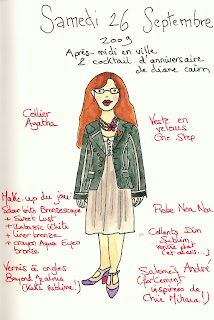 Samedi 26 Septembre
2009
Après-midi en ville
& cocktail d'anniversaire
de diane cairn
Collier
Agatha
Veste en
velours
One Step
Make-up du jour
Solar bits Bronzescape
+ Sweet Lust
+ Blanc White
+ liner bronze
+ crayon Aqua Eyes
bronze
Robe Noa Noa
Collants Dim
Sublim
Vernis à ongles
Beyond
(Kaki Sublime!)
Salomés André
(forcément
inspirées de
Chie Mihara!)